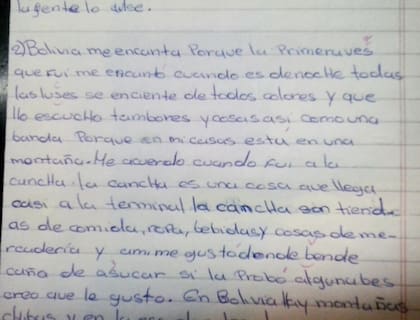 la fente lo dise.
2) Bolivia me encanta Porque la Primera ves
que fui me encantó cuando es de noche todas
las luses se enciente de todos colores y que
llo escucho tambores y cosas así como una
banda Porque en mi casas esta en una
montaña. Me acuerdo cuando fui a la
cancha. la cancha es una cosa que llega
casi a la terminal la cancha son tiend-
as de comida, ropa, bebidas y cosas de me-
rcaderia y ami me gusta donde bende
caña de asucar si la Probó alguna bes
creo que le gusto. En Bolivia hay montañas